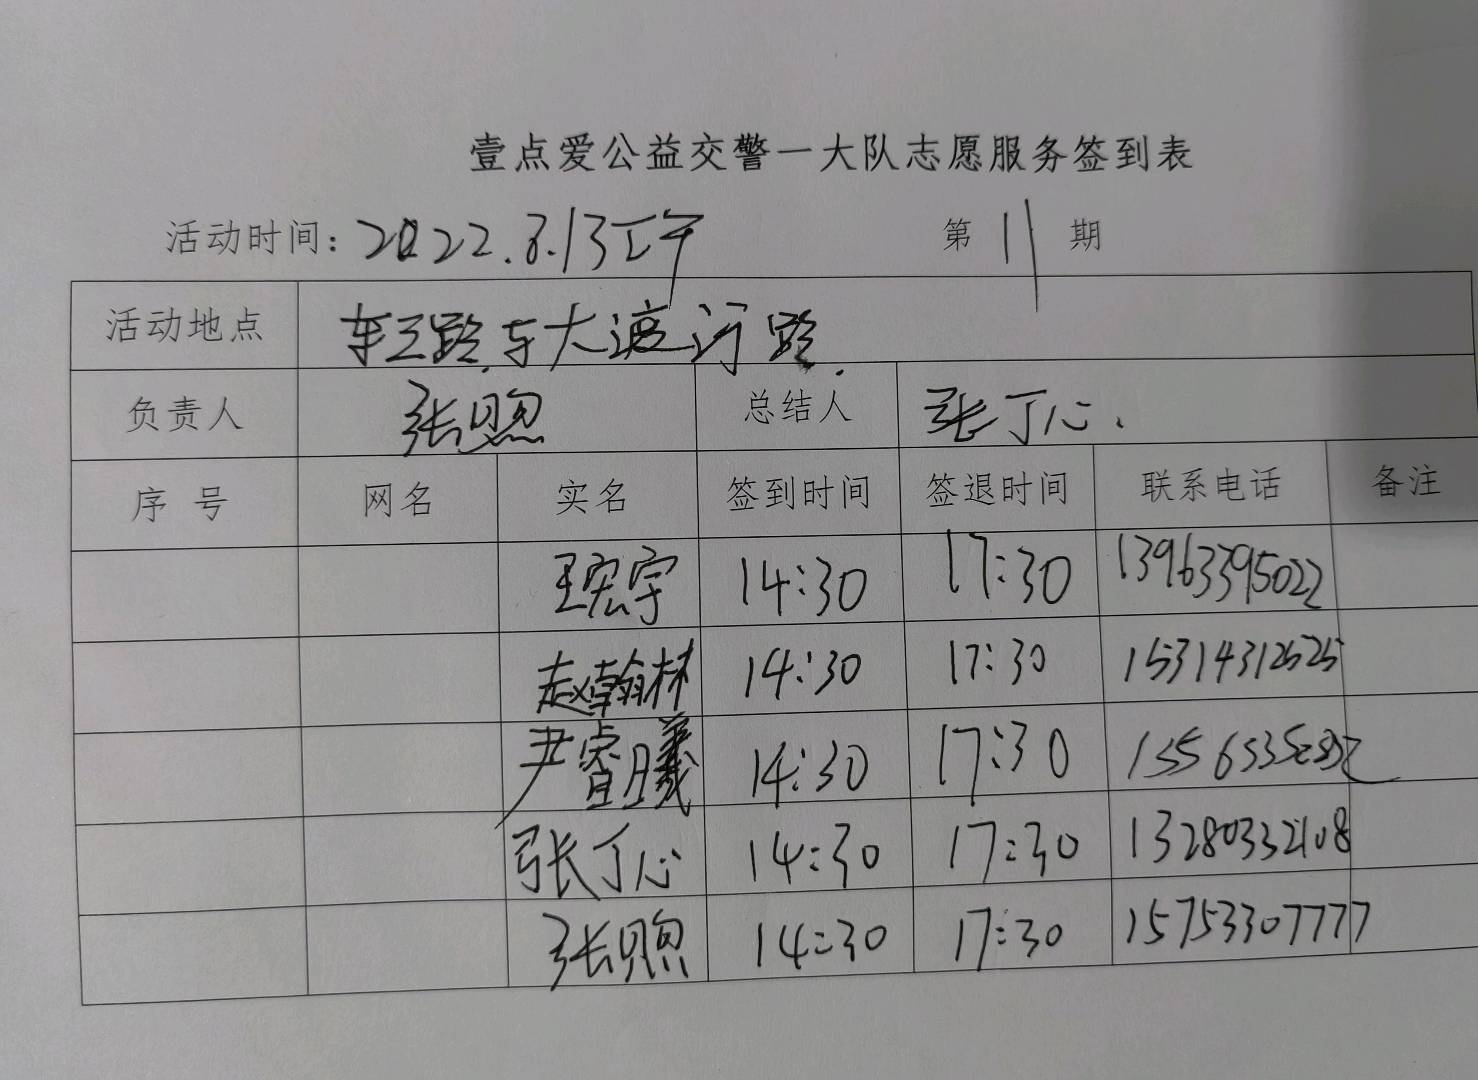 壹点爱公益交警一大队志愿服务签到表
活动时间：2022.8.13下午 第 11 期
活动地点 大渡河路
负责人 张煦 总结人 张丁心
序号 网名 实名 签到时间 签退时间 联系电话 备注
王宏宇 14:30 17:30 13963395022
赵翰林 14:30 17:30 15314312525
尹睿曦 14:30 17:30
张丁心 14:30 17:30 13280332108
张煦 14:30 17:30 15753307777